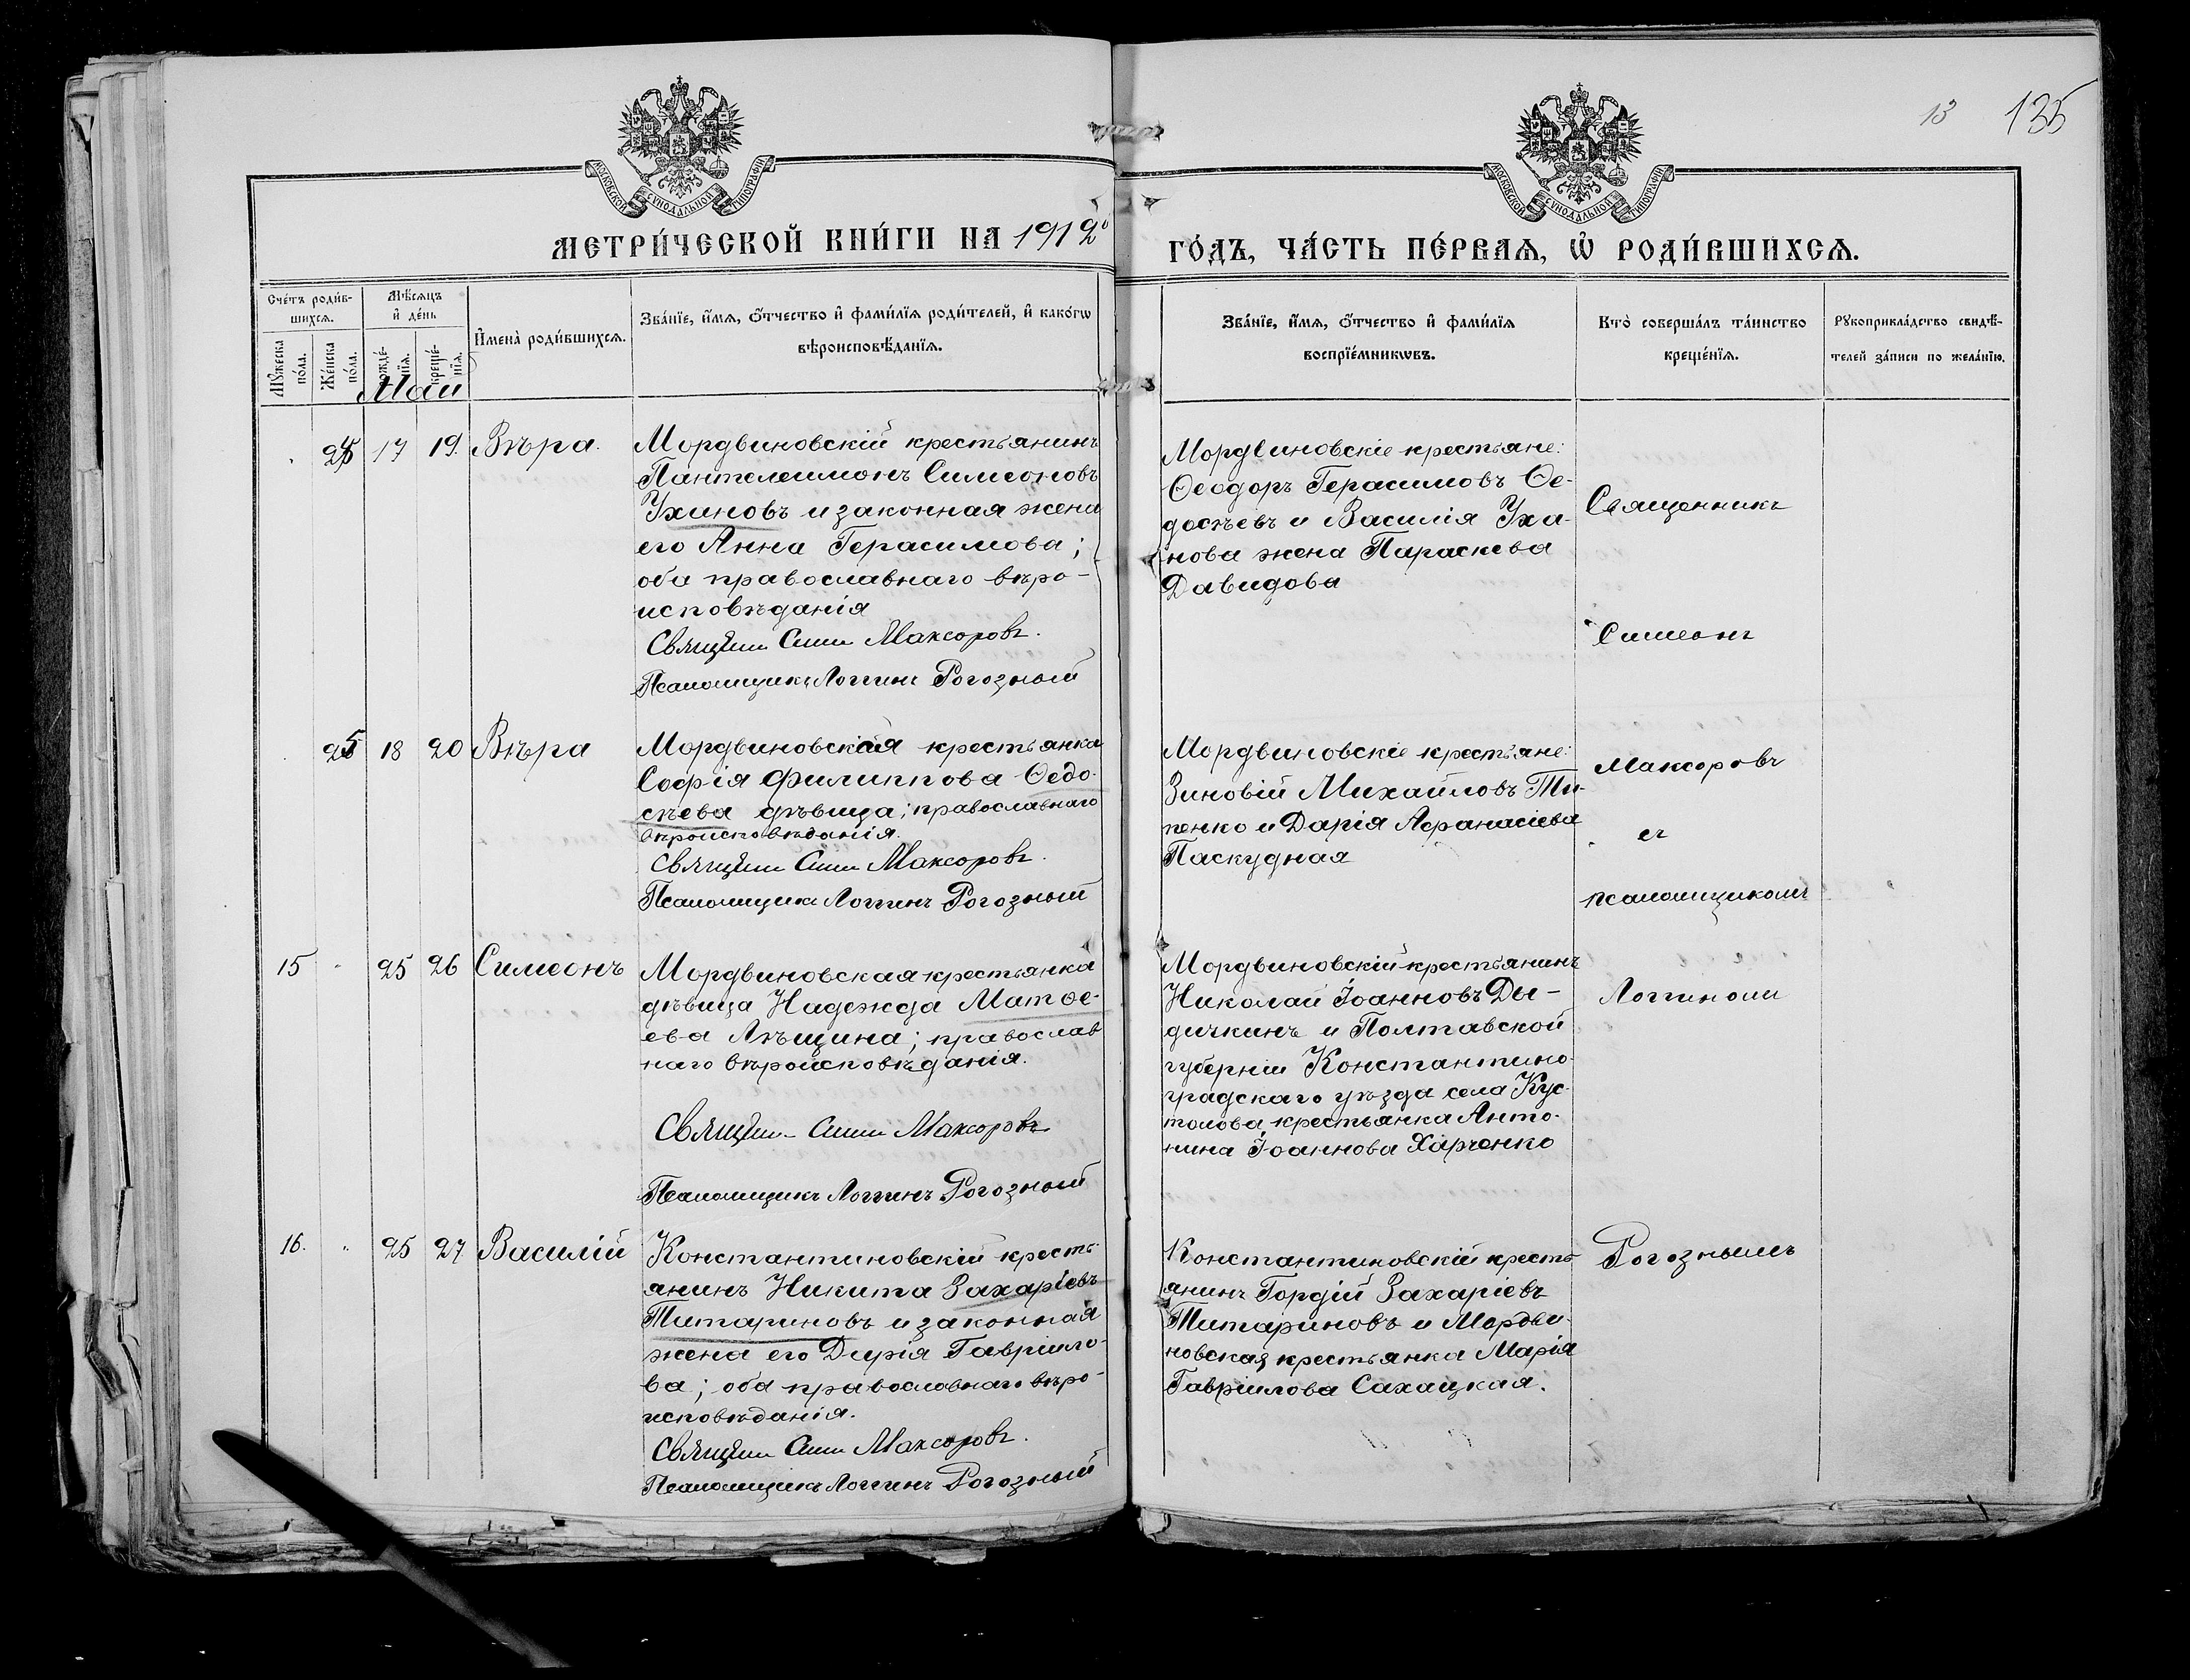 13 135
МОСКОВСКОЙ СѴНОДАЛЬНОЙ ТИПОГРАФІИ
МОСКОВСКОЙ СѴНОДАЛЬНОЙ ТИПОГРАФІИ
МЕТРИ́ЧЕСКОЙ КНИ́ГИ НА 1912й
ГО́ДЪ, ЧА́СТЬ ПЕ́РВАѦ, Ѽ РОДИ́ВШИХСѦ.
Сче́тъ роди́в-
шихсѧ.
Мꙋ́жеска по́ла.
Же́нска по́ла.
Мѣ́сѧцъ
и҆ де́нь
рожде́-нїѧ.
креще́-нїѧ.
И҆мена̀ роди́вшихсѧ.
Зва́нїе, и҆́мѧ, ѻ҆́тчество и҆ фами́лїѧ роди́телей, и҆ како́гѡ
вѣроисповѣ́данїѧ.
Зва́нїе, и҆́мѧ, ѻ҆́тчество и҆ фами́лїѧ
воспрїе́мникѡвъ.
Кто̀ соверша́лъ та́инство
креще́нїѧ.
Рꙋкоприкла́дство свидѣ́-
телей за́писи по жела́нїю.
Май
24 17 19. Вѣра.
Мордвиновскій крестьянинъ
Пантелеимонъ Симеоновъ
Ухиновъ и законная жена
его Анна Герасимова;
оба православнаго вѣро-
исповѣданія
Священ Сим Максоровъ.
Псаломщикъ Логгинъ Рогозный
Мордвиновскіе крестьяне:
Ѳеодоръ Герасимовъ Ѳе-
досѣевъ и Василія Уха-
нова жена Параскева
Давидова
Священникъ
Симеонъ
25 18 20 Вѣра
Мордвиновская крестьянка
Софія Филиппова Ѳедо-
сѣева дѣвица; православнаго
вѣроисповѣданія.
Священ Сим Максоровъ.
Псаломщикъ Логгинъ Рогозный
Мордвиновскіе крестьяне:
Зиновій Михайловъ Ти-
пенко и Дарія Аѳанасіева
Паскудная
Максоровъ
съ
псаломщикомъ
15 " 25 26 Симеонъ
Мордвиновская крестьянка
дѣвица Надежда Матѳе-
ева Лѣщина; православ
наго вѣроисповѣданія.
Священ Сим Максоровъ
Псаломщикъ Логгинъ Рогозный
Мордвиновскій крестьянинъ
Николай Іоанновъ Ды-
дичкинъ и Полтавской
губерніи Константино-
градскаго уѣзда села Кус-
толова крестьянка Анто-
нина Іоаннова Харченко
Логгиномъ
16. " 25 27 Василій
Константиновскій кресть-
янинъ Никита Захаріевъ
Титариновъ и законная
жена его Дарія Гавріило-
ва; оба православнаго вѣро-
исповѣданія.
Священ Сим Максоровъ.
Псаломщикъ Логгинъ Рогозный
Константиновскій кресть
янинъ Гордій Захаріевъ
Титариновъ и Мордви-
новская крестьянка Марія
Гавріилова Сахацкая.
Рогознымъ